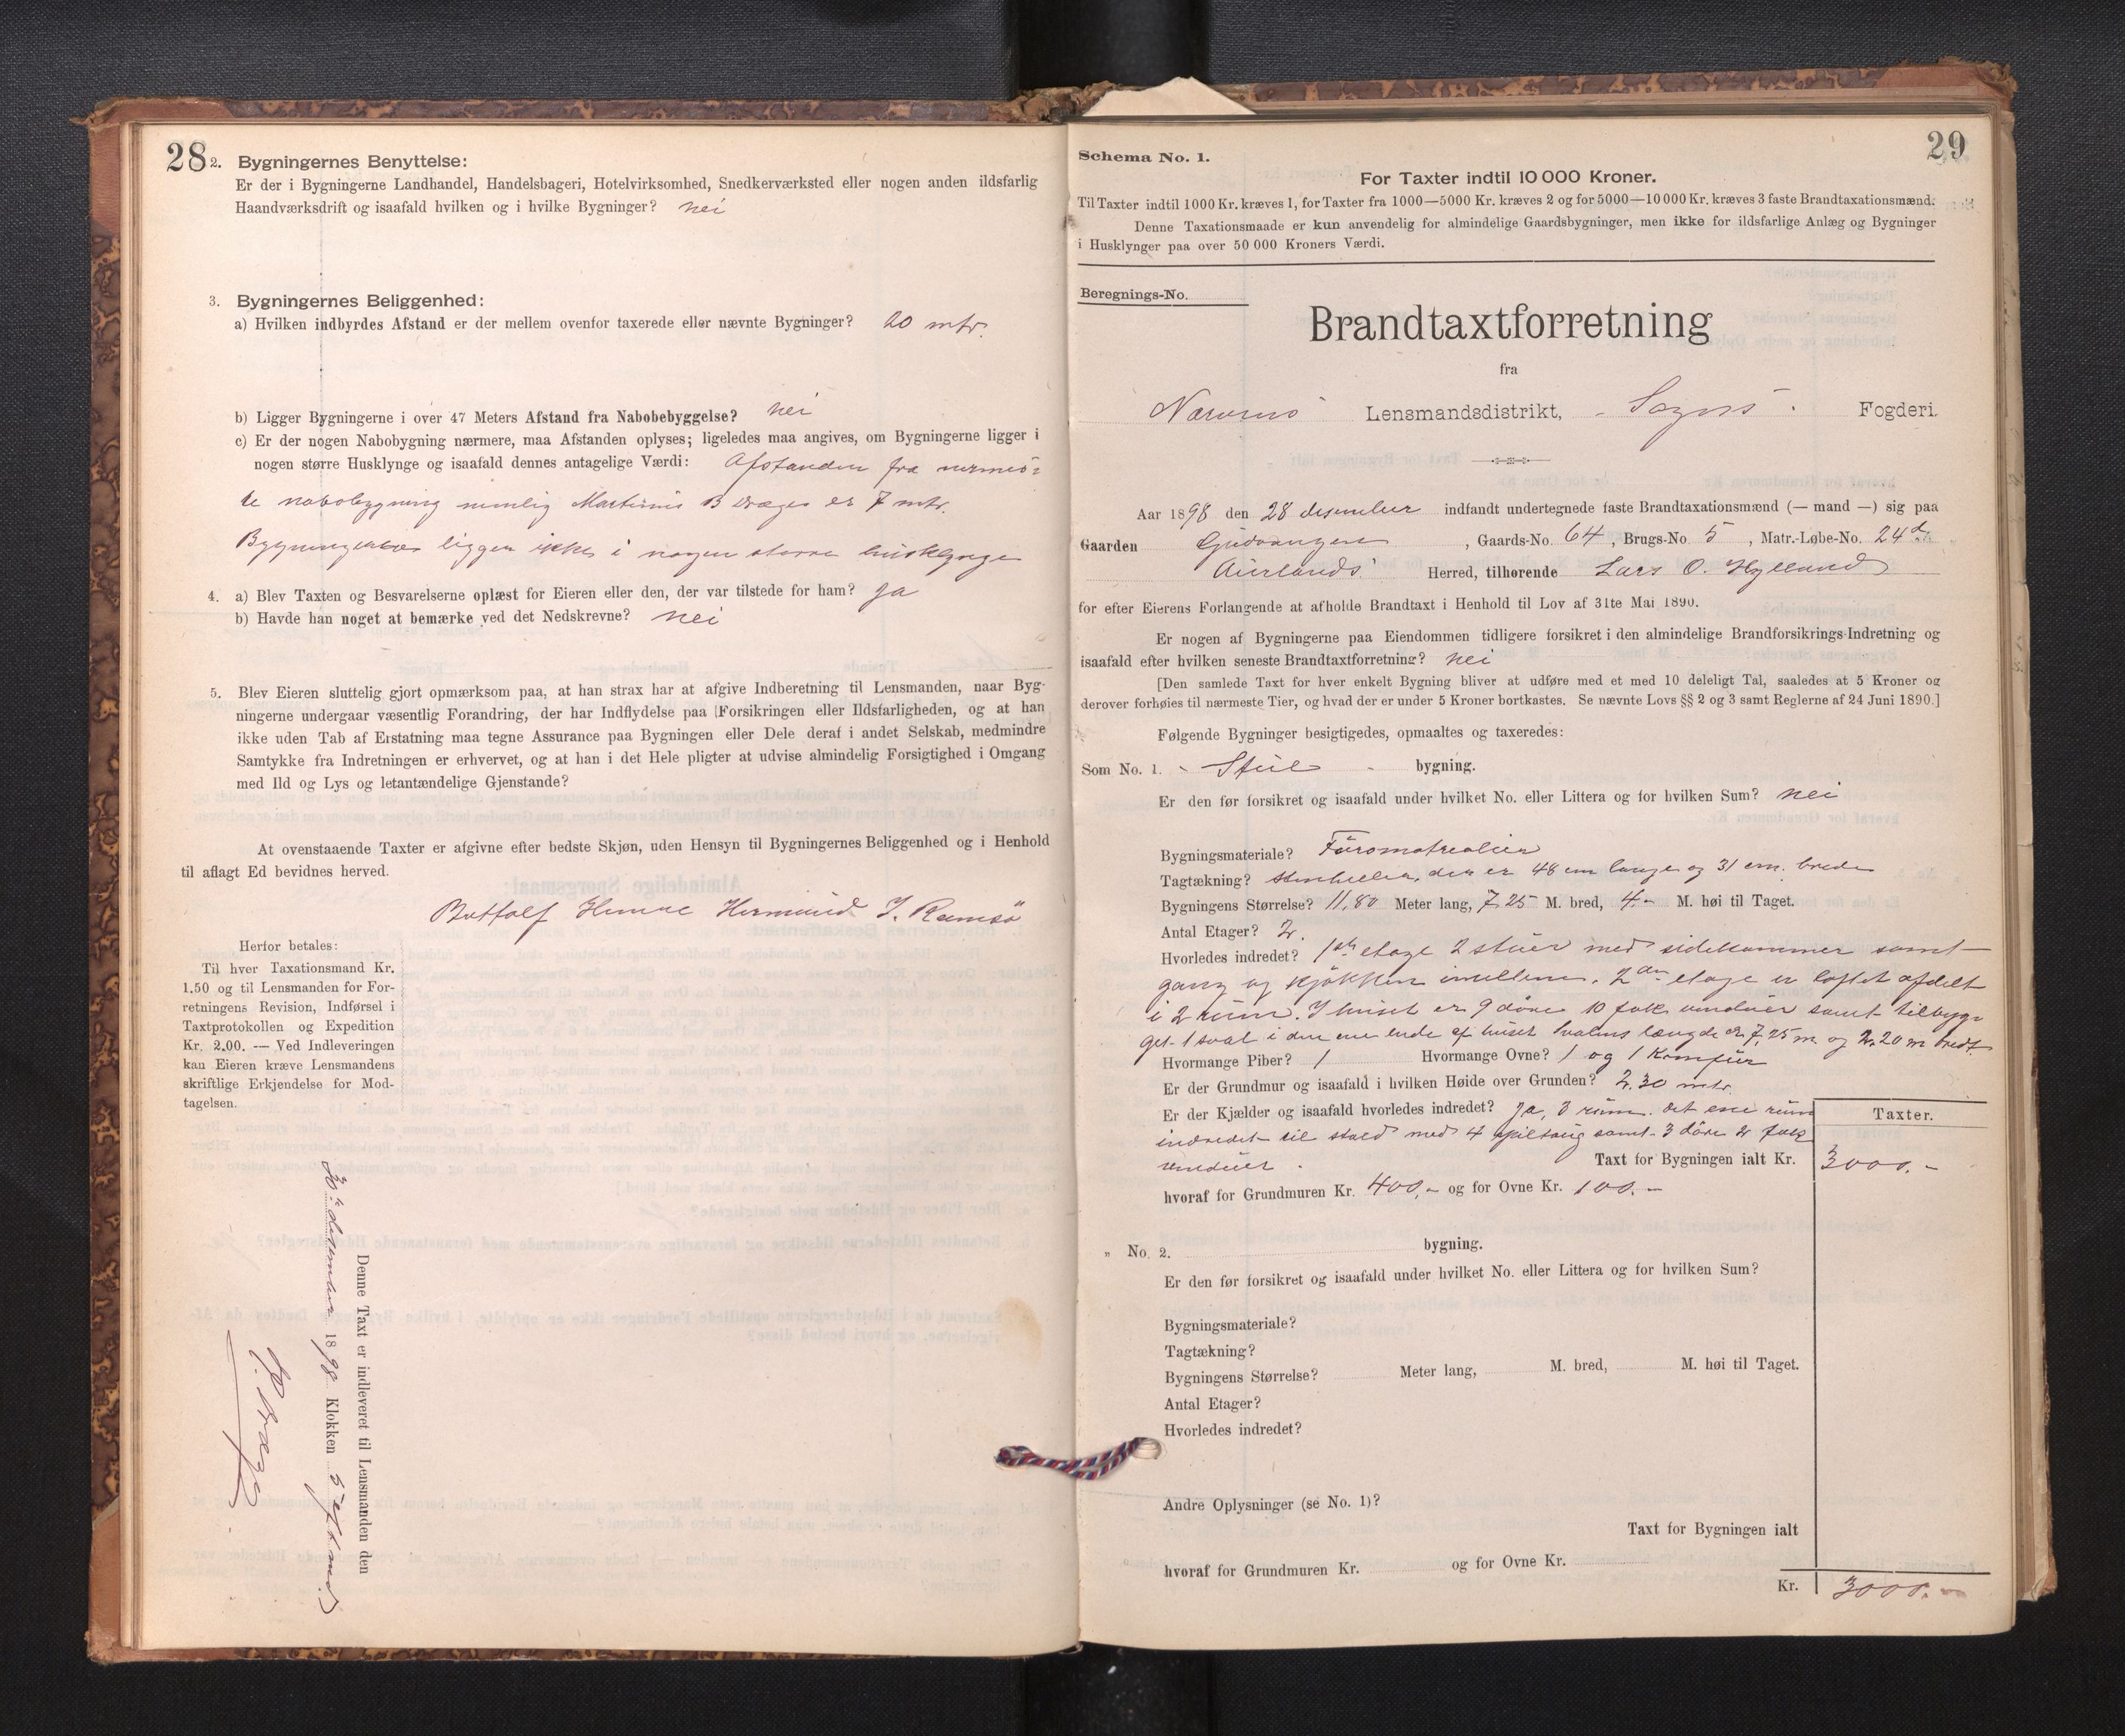 28
2. Bygningernes Benyttelse:
Er der i Bygningerne Landhandel, Handelsbageri, Hotelvirksomhed, Snedkerværksted eller nogen anden ildsfarlig
Haandværksdrift og isaafald hvilken og i hvilke Bygninger? nei
3. Bygningernes Beliggenhed:
a) Hvilken indbyrdes Afstand er der mellem ovenfor taxerede eller nævnte Bygninger? 20 mtr.
b) Ligger Bygningerne i over 47 Meters Afstand fra Nabobebyggelse? nei
c) Er der nogen Nabobygning nærmere, maa Afstanden oplyses; ligeledes maa angives, om Bygningerne ligger i
nogen større Husklynge og isaafald dennes antagelige Værdi: Afstanden fra nærmes-
te nabobygning nemlig Martinus B Dræges er 7 mtr.
Bygningerne ligger ikke i nogen større husklynge
4. a) Blev Taxten og Besvarelserne oplæst for Eieren eller den, der var tilstede for ham? ja
b) Havde han noget at bemærke ved det Nedskrevne? nei
5. Blev Eieren sluttelig gjort opmærksom paa, at han strax har at afgive Indberetning til Lensmanden, naar Byg-
ningerne undergaar væsentlig Forandring, der har Indflydelse paa Forsikringen eller Ildsfarligheden, og at han
ikke uden Tab af Erstatning maa tegne Assurance paa Bygningen eller Dele deraf i andet Selskab, medmindre
Samtykke fra Indretningen er erhvervet, og at han i det Hele pligter at udvise almindelig Forsigtighed i Omgang
med Ild og Lys og letantændelige Gjenstande?
At ovenstaaende Taxter er afgivne efter bedste Skjøn, uden Hensyn til Bygningernes Beliggenhed og i Henhold
til aflagt Ed bevidnes herved.
Botolf Hermund I. Ramsö
Herfor betales:
Til hver Taxationsmand Kr.
1.50 og til Lensmanden for For-
retningens Revision, Indførsel i
Taxtprotokollen og Expedition
Kr. 2.00. — Ved Indleveringen
kan Eieren kræve Lensmandens
skriftlige Erkjendelse for Mod-
tagelsen.
Denne Taxt er indleveret til Lensmanden den
30te desember 1898 Klokken 5 eftmd
29
Schema No. 1.
For Taxter indtil 10 000 Kroner.
Til Taxter indtil 1000 Kr. kræves 1, for Taxter fra 1000—5000 Kr. kræves 2 og for 5000—10 000 Kr. kræves 3 faste Brandtaxationsmænd.
Denne Taxationsmaade er kun anvendelig for almindelige Gaardsbygninger, men ikke for ildsfarlige Anlæg og Bygninger
i Husklynger paa over 50 000 Kroners Værdi.
Beregnings-No.
Brandtaxtforretning
fra
Nærøens Lensmandsdistrikt, Sogns Fogderi.
Aar 1898 den 28 desember indfandt undertegnede faste Brandtaxationsmænd (— mand —) sig paa
Gaarden Gudvangen, Gaards-No. 64, Brugs-No. 5, Matr.-Løbe-No. 24 d.
Aurlands Herred, tilhørende Lars O. Hylland
for efter Eierens Forlangende at afholde Brandtaxt i Henhold til Lov af 31te Mai 1890.
Er nogen af Bygningerne paa Eiendommen tidligere forsikret i den almindelige Brandforsikrings-Indretning og
isaafald efter hvilken seneste Brandtaxtforretning? nei
[Den samlede Taxt for hver enkelt Bygning bliver at udføre med et med 10 deleligt Tal, saaledes at 5 Kroner og
derover forhøies til nærmeste Tier, og hvad der er under 5 Kroner bortkastes. Se nævnte Lovs §§ 2 og 3 samt Reglerne af 24 Juni 1890.]
Følgende Bygninger besigtigedes, opmaaltes og taxeredes:
Som No. 1. - Stue - bygning.
Er den før forsikret og isaafald under hvilket No. eller Littera og for hvilken Sum? nei
Bygningsmateriale? Furomatrealier
Tagtækning? Stenheller, der er 48 cm lange og 31 cm. brede
Bygningens Størrelse? 11,80 Meter lang, 7,25 M. bred, 4.- M. høi til Taget.
Antal Etager? 2.
Hvorledes indredet? 1ste etage 2 stuer med sidekammer samt
gang og kjøkken imellem. 2den etage er loftet afdelt
i 2 rum. I huset er 9 döre 10 fak vinduer samt tilbyg-
get 1 sval i den ene ende af huset svalens længde er 7,25 m og 2,20 m bredt.
Hvormange Piber? 1 Hvormange Ovne? 1 og 1 Komfur
Er der Grundmur og isaafald i hvilken Høide over Grunden? 2,30 mtr.
Er der Kjælder og isaafald hvorledes indredet? Ja, 3 rum. det ene rum
indredet til stald med 4 spiltaug samt 3 döre 2 fak
vinduer.
Taxter.
Taxt for Bygningen ialt Kr. 3000.-
hvoraf for Grundmuren Kr. 400,- og for Ovne Kr. 100.-
„ No. 2. bygning.
Er den før forsikret og isaafald under hvilket No. eller Littera og for hvilken Sum?
Bygningsmateriale?
Tagtækning?
Bygningens Størrelse? Meter lang, M. bred, M. høi til Taget.
Antal Etager?
Hvorledes indredet?
Andre Oplysninger (se No. 1)?
Taxt for Bygningen ialt
hvoraf for Grundmuren Kr. og for Ovne Kr.
Kr. 3000.-